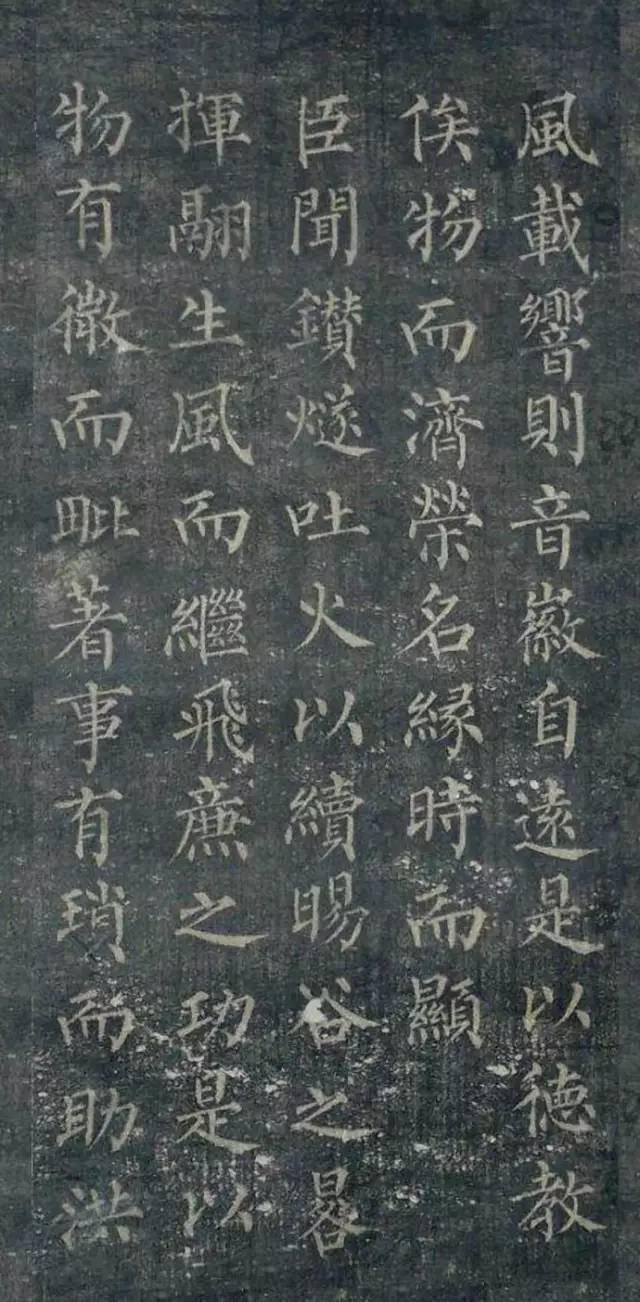 風載響則音徽自遠是以德教
俟物而濟榮名緣時而顯
臣聞鑽燧吐火以續暘谷之晷
揮翮生風而繼飛廉之功是以
物有微而毗著事有瑣而助洪